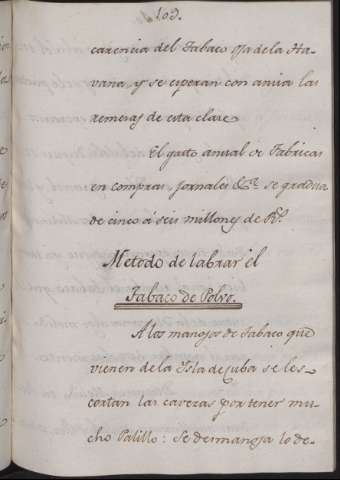 109.
carencia del Tabaco oja de la Ha-
vana, y se esperan con ansia las
remesas de esta clase
El gasto anual de Fabricas
en compras, Jornales &ca. se gradua
de cinco á seis millones de Rs.
Metodo de labrar el
Tabaco de Polvo.
A los manojos de Tabaco que
vienen de la Isla de Cuba se les
cortan las cavezas por tener mu-
cho Palillo: se desmanoja lo de-